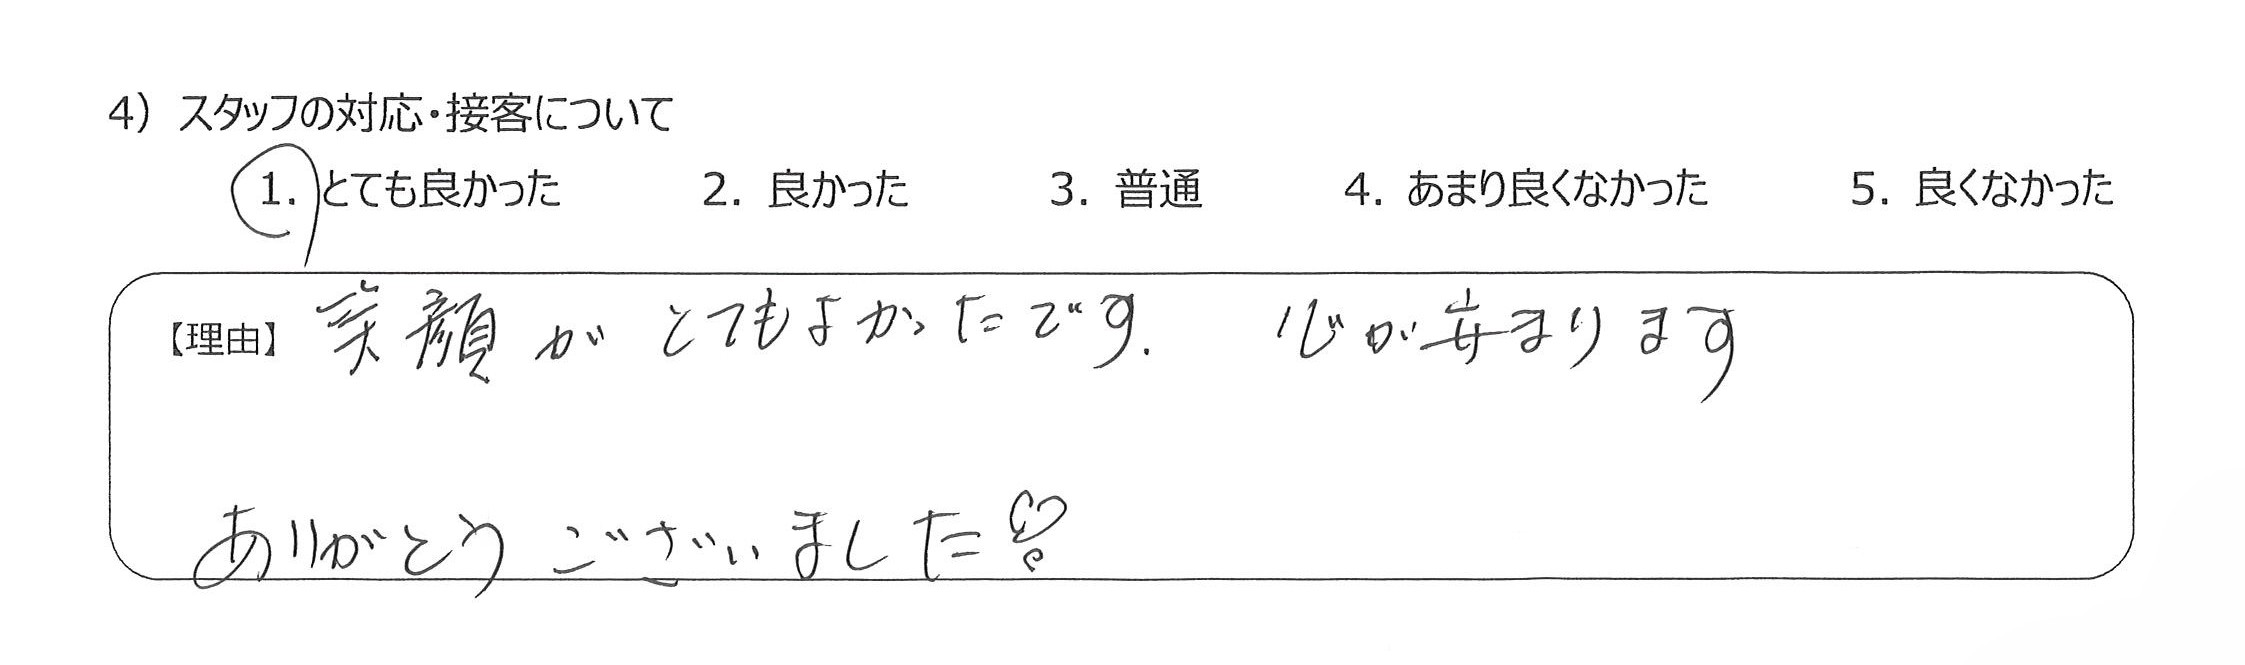 4）スタッフの対応・接客について
1. とても良かった 2. 良かった 3. 普通 4. あまり良くなかった 5. 良くなかった
【理由】 笑顔が とてもよかったです. 心が安まります
ありがとう ございました♡